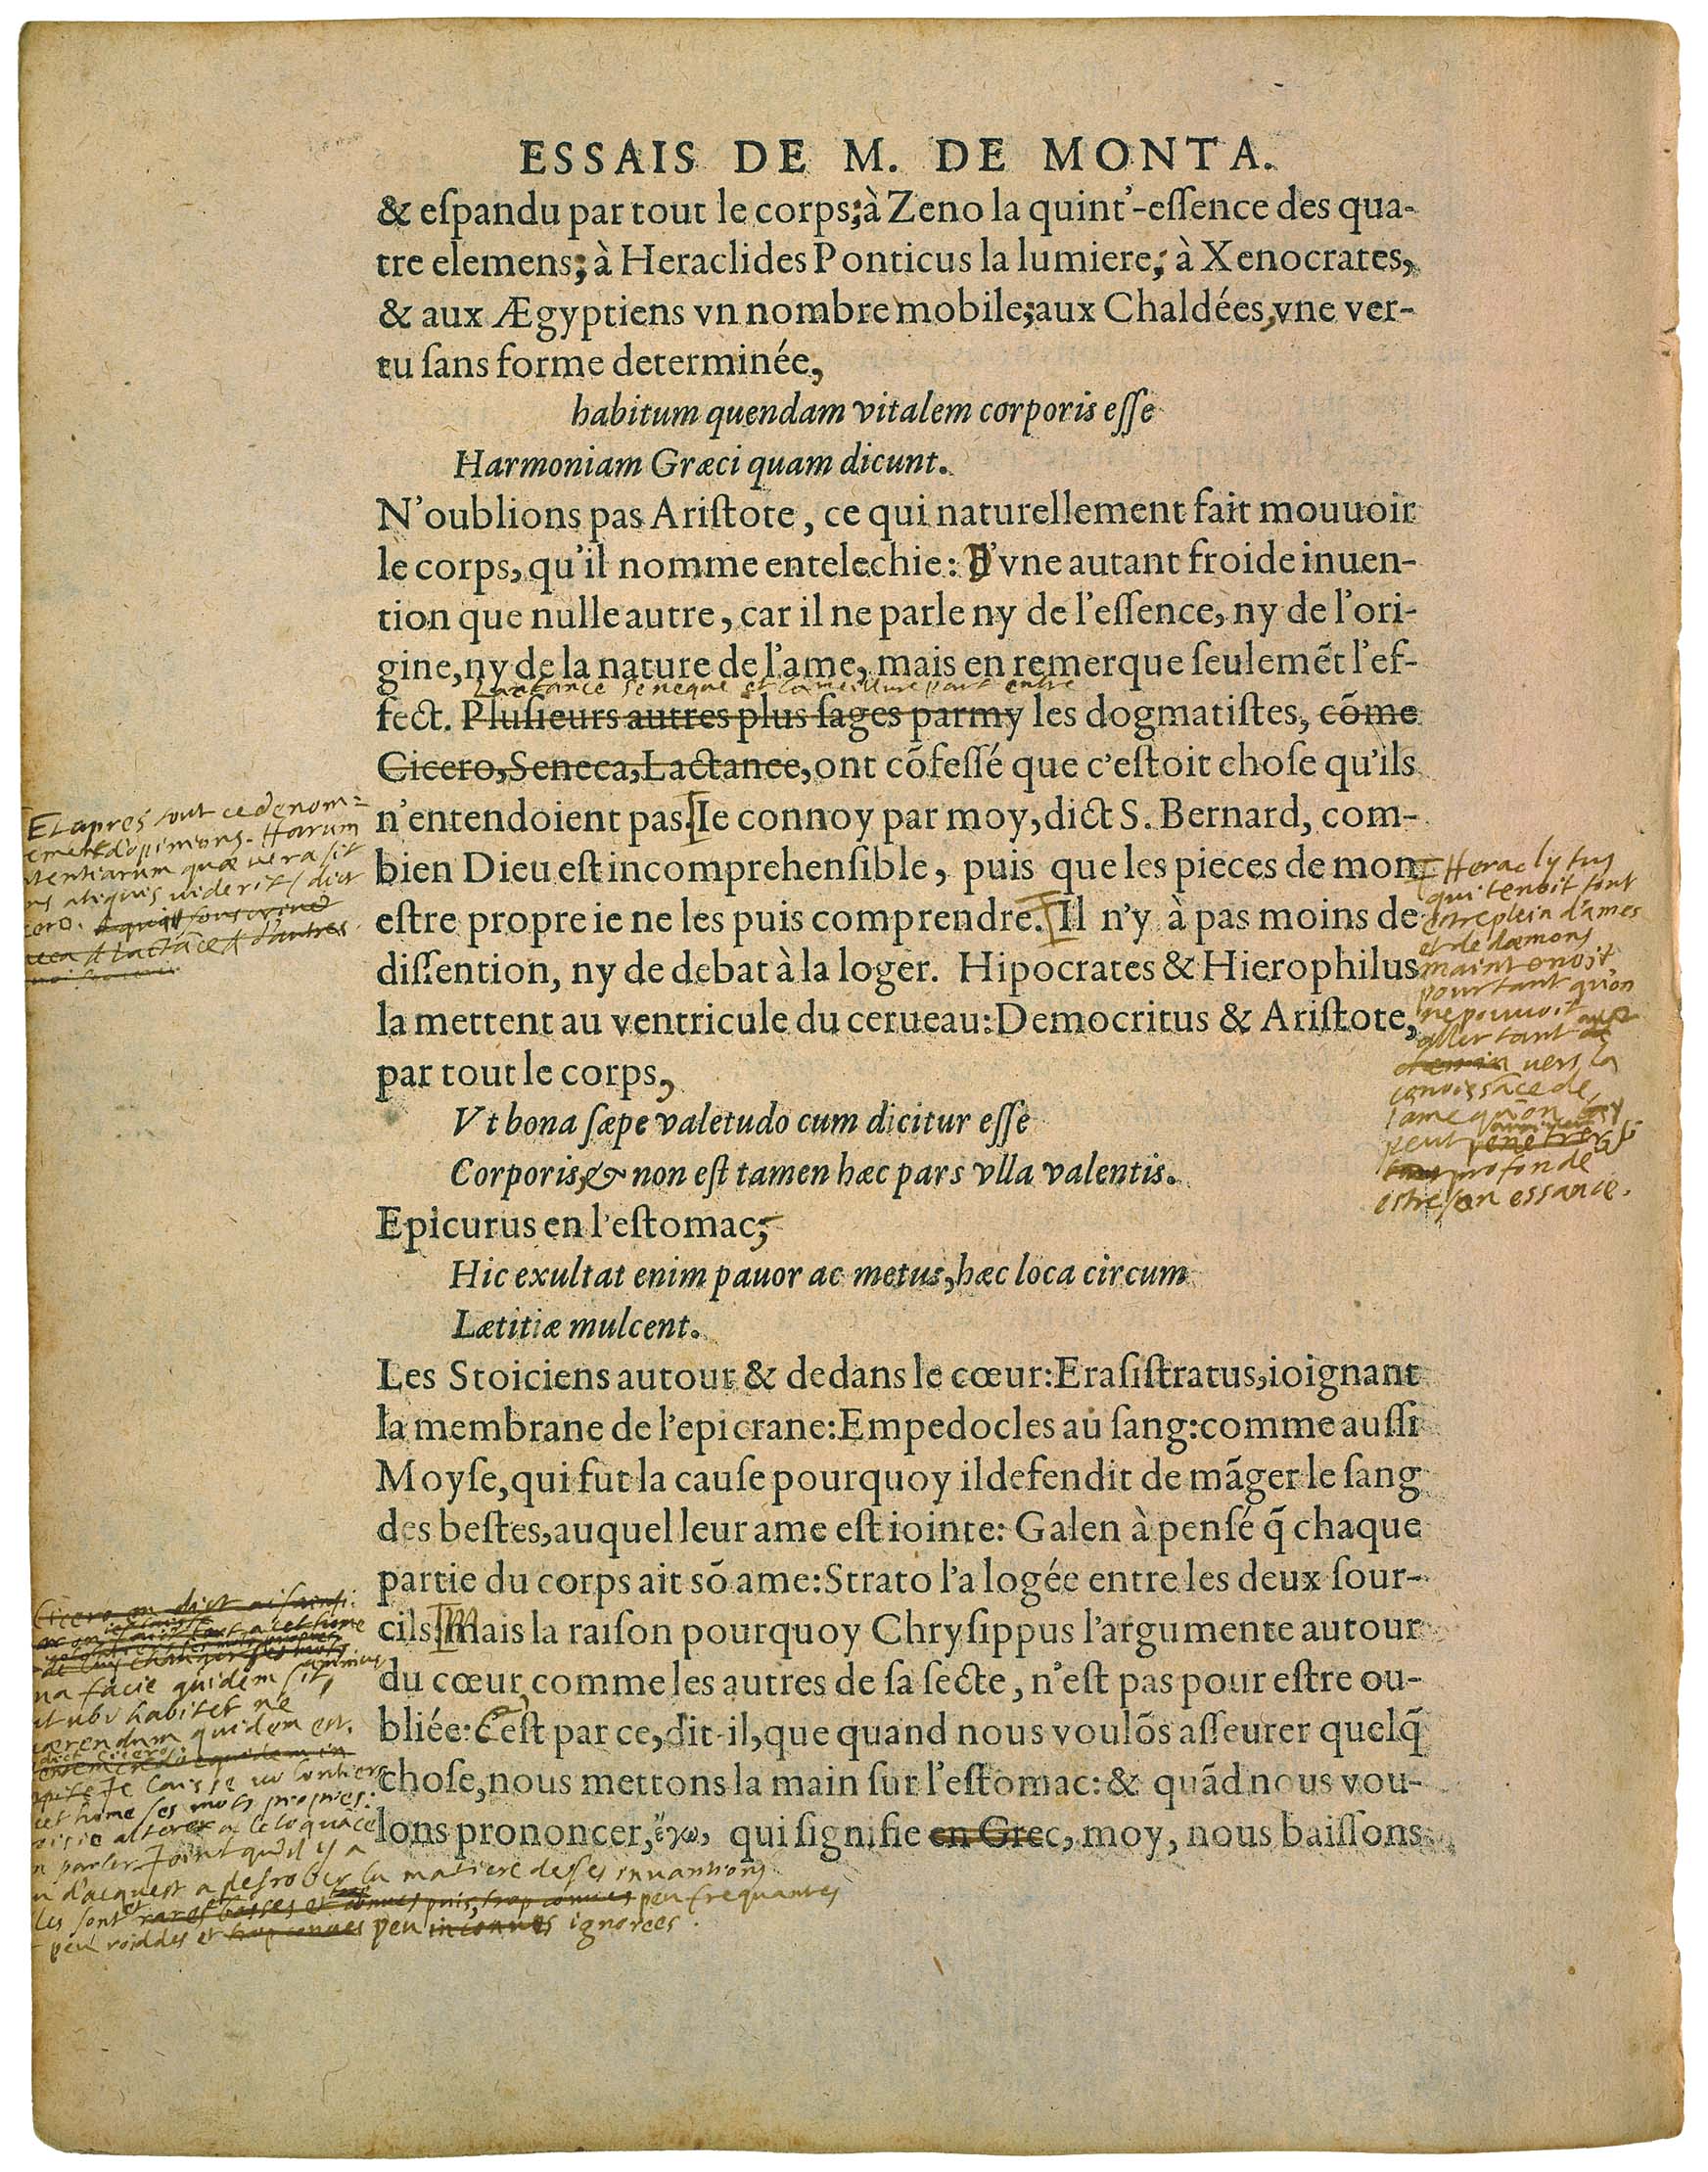 ESSAIS DE M. DE MONTA.
& eſpandu par tout le corps; à Zeno la quint'-eſſence des qua-
tre elemens; à Heraclides Ponticus la lumiere; à Xenocrates,
& aux Ægyptiens vn nombre mobile; aux Chaldées, vne ver-
tu ſans forme determinée,
habitum quendam vitalem corporis eſſe
Harmoniam Græci quam dicunt.
N'oublions pas Ariſtote, ce qui naturellement fait mouuoir
le corps, qu'il nomme entelechie: D'vne autant froide inuen-
tion que nulle autre, car il ne parle ny de l'eſſence, ny de l'ori-
gine, ny de la nature de l'ame, mais en remerque ſeulemẽt l'ef-
Lactance Seneque et la meillure part entre
fect. Pluſieurs autres plus ſages parmy les dogmatiſtes, cõme
Cicero, Seneca, Lactance, ont cõfeſſé que c'eſtoit choſe qu'ils
n'entendoient pas. Ie connoy par moy, dict S. Bernard, com-
bien Dieu eſt incomprehenſible, puis que les pieces de mon
eſtre propre ie ne les puis comprendre. Il n'y à pas moins de
diſſention, ny de debat à la loger. Hipocrates & Hierophilus
la mettent au ventricule du cerueau: Democritus & Ariſtote,
par tout le corps,
Vt bona ſæpe valetudo cum dicitur eſſe
Corporis, & non eſt tamen hæc pars vlla valentis.
Epicurus en l'eſtomac;
Hic exultat enim pauor ac metus, hæc loca circum
Lætitiæ mulcent.
Les Stoiciens autour & dedans le cœur: Eraſiſtratus, ioignant
la membrane de l'epicrane: Empedocles au ſang: comme auſſi
Moyſe, qui fut la cauſe pourquoy il defendit de mãger le ſang
des beſtes, auquel leur ame eſt iointe: Galen à penſé q̃ chaque
partie du corps ait sõ ame: Strato l'a logée entre les deux ſour-
cils: Mais la raiſon pourquoy Chryſippus l'argumente autour
du cœur, comme les autres de ſa ſecte, n'eſt pas pour eſtre ou-
bliée: C'eſt par ce, dit-il, que quand nous voulõs aſſeurer quelq̃
choſe, nous mettons la main ſur l'eſtomac: & quãd nous vou-
lons prononcer, ἐγω, qui ſignifie en Grec, moy, nous baiſſons
Et apres tout ce denom=
ement d'opinions. Harum
tentiarum quæ vera sit
us aliquis viderit, dict
cero.
Heraclytus
qui tenoit tout
estre plein d'ames
et de dæmons
maintenoit
pourtant qu'on
ne pouvoit
aller tant
vers la
conoissãce de
l'ame qu'on
peut
profonde
estre son essance.
Cicero en dict
na facie quidem sit animus
ut ubi habitet ne
ærendum quidem est,
dict Cicero
Je laisse volontiers
cet home ses mots propres.
oisie alterer a l'eloquãce
n parler. Joint qu'il y a
u d'acquest a desrober la matiere de ses invantions
les sont et peu frequantes
peu roiddes et peu ignorees.